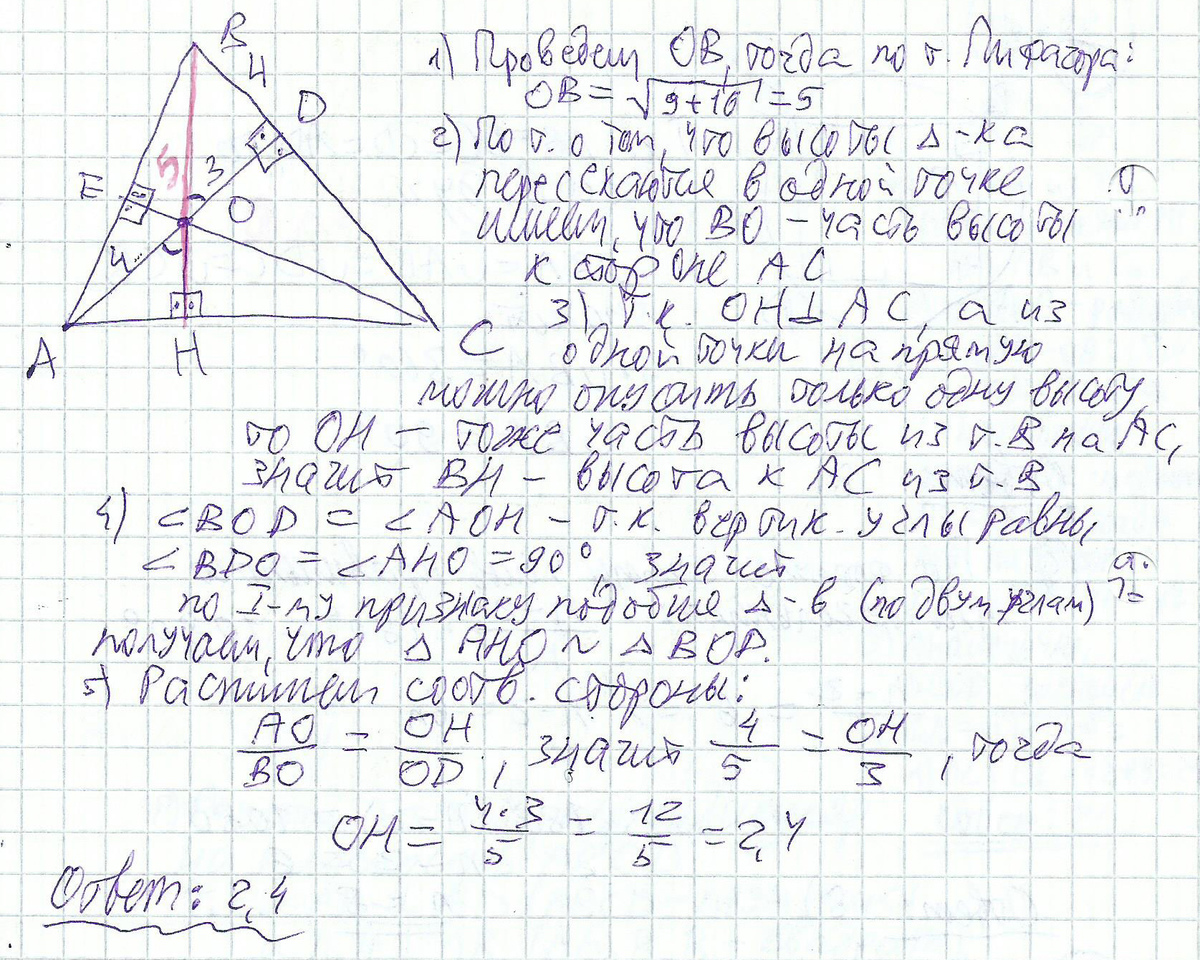 B
4
D
E
5
3
O
4
A
H
C
1) Проведем OB, тогда по т. Пифагора:
OB = √9+16 = 5
2) По т. о том, что высоты Δ-ка
пересекаются в одной точке
имеем, что BO – часть высоты
к стороне AC
3) Т.к. OH⊥AC, а из
одной точки на прямую
можно опустить только одну высоту,
то OH – тоже часть высоты из т. B на AC,
значит BH – высота к AC из т. B
4) ∠BOD = ∠AOH – т.к. вертик. углы равны
∠BDO = ∠AHO = 90°, значит
по I-му признаку подобия Δ-в (по двум углам)
получаем, что Δ AHO ~ Δ BOD.
5) Распишем соотв. стороны:
AO/BO = OH/OD, значит 4/5 = OH/3, тогда
OH = 4·3/5 = 12/5 = 2,4
Ответ: 2,4